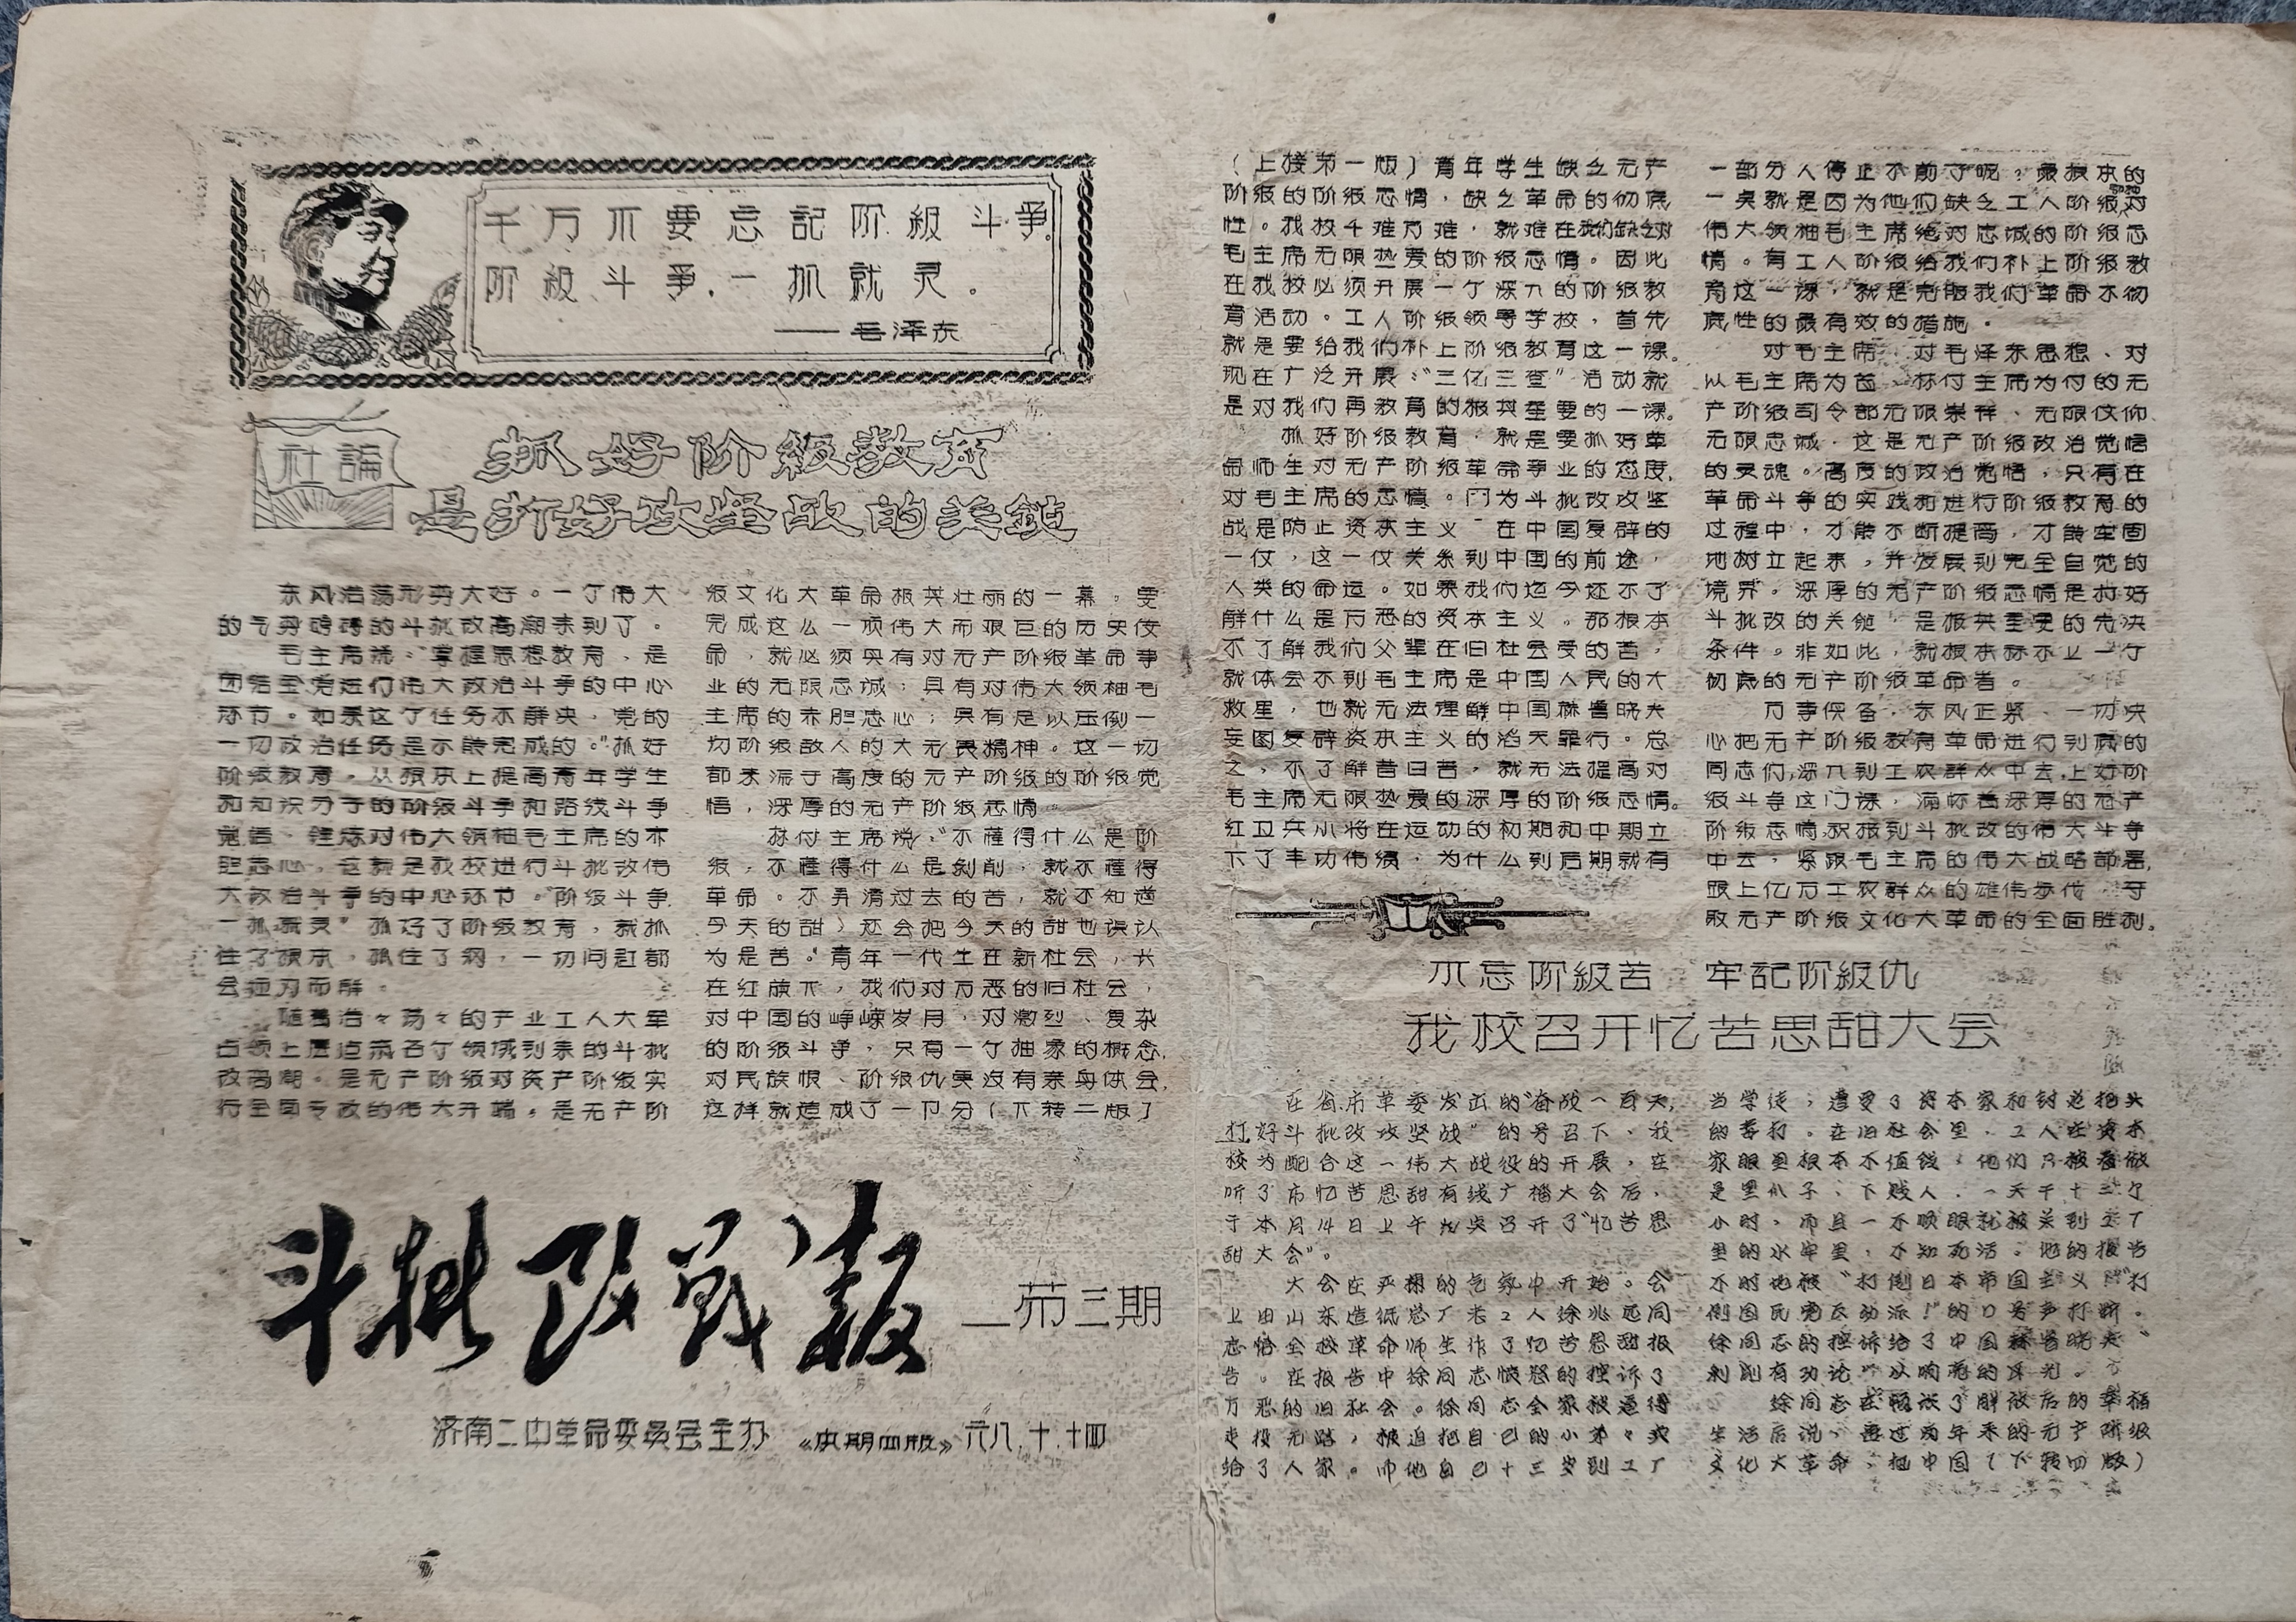 千万不要忘記阶級斗爭,
阶級斗爭,一抓就灵。
——毛泽东
社論
抓好阶級教育
是打好攻坚战的关鍵
东风浩荡形势大好。一个伟大
的气势磅礴的斗批改高潮来到了。
毛主席说:“掌握思想教育,是
团结全党进行伟大政治斗争的中心
环节。如果这个任务不解决,党的
一切政治任务是不能完成的。”抓好
阶级教育。从根本上提高青年学生
和知识分子的阶级斗争和路线斗争
觉悟、锤炼对伟大领袖毛主席的
胆忠心,这就是我校进行斗批改伟
大政治斗争的中心环节。“阶级斗争,
一抓就灵”抓好了阶级教育,就抓
住了根本,抓住了纲,一切问题都
会迎刃而解。
随着浩々荡々的产业工人大军
占领上层建筑各个领域到来的斗批
改高潮。是无产阶级对资产阶级实
行全面专政的伟大开端。是无产阶
级文化大革命极其壮丽的一幕。要
完成这么一项伟大而艰巨的历史使
命,就必须具有对无产阶级革命事
业的无限忠诚;具有对伟大领袖毛
主席的赤胆忠心;具有足以压倒一
切阶级敌人的大无畏精神。这一切
都来源于高度的无产阶级的阶级觉
悟,深厚的无产阶级感情。
林付主席说:“不懂得什么是阶
级,不懂得什么是剥削,就不懂得
革命。不弄清过去的苦,就不知道
今天的甜,还会把今天的甜也误认
为是苦。”青年一代生在新社会,长
在红旗下,我们对万恶的旧社会,
对中国的峥嵘岁月,对激烈、复杂
的阶级斗争,只有一个抽象的概念,
对民族恨、阶级仇更没有亲身体会,
这样就造成了一部分(下转二版)
斗批改战报
第三期
济南二中革命委员会主办
《本期四版》
六八.十.十四
(上接第一版)青年学生缺乏无产
阶级的阶级感情,缺乏革命的彻底
性。我校千难万难,就难在我们缺乏对
毛主席无限热爱的阶级感情。因此
在我校必须开展一个深入的阶级教
育活动。工人阶级领导学校,首先
就是要给我们补上阶级教育这一课。
现在广泛开展:“三亿三查”活动就
是对我们再教育的极其重要的一课。
抓好阶级教育,就是要抓好革
命师生对无产阶级革命事业的态度,
对毛主席的态度。因为斗批改攻坚
战是防止资本主义 在中国复辟的
一仗,这一仗关系到中国的前途,
人类的命运。如果我们迄今还不了
解什么是万恶的资本主义。那根本
不了解我们父辈在旧社会受的苦,
就体会不到毛主席是中国人民的大
救星,也就无法理解中国赫鲁晓夫
妄图复辟资本主义的滔天罪行。总
之,不了解昔日苦,就无法提高对
毛主席无限热爱的深厚的阶级感情。
红卫兵小将在运动的初期和中期立
下了丰功伟绩,为什么到后期就有
一部分人停止不前了呢?最根本的
一点就是因为他们缺乏工人阶级对
伟大领袖毛主席绝对忠诚的阶级感
情。有工人阶级给我们补上阶级教
育这一课,就是克服我们革命不彻
底性的最有效的措施。
对毛主席、对毛泽东思想、对
以毛主席为首、林付主席为付的无
产阶级司令部无限崇拜、无限信仰、
无限忠诚,这是无产阶级政治觉悟
的灵魂。高度的政治觉悟,只有在
革命斗争的实践和进行阶级教育的
过程中,才能不断提高,才能牢固
地树立起来,并发展到完全自觉的
境界。深厚的无产阶级感情是打好
斗批改的关键,是极其重要的先决
条件。非如此,就根本称不上一个
彻底的无产阶级革命者。
万事俱备,东风正紧、一切决
心把无产阶级教育革命进行到底的
同志们,深入到工农群众中去,上好阶
级斗争这门课,满怀着深厚的无产
阶级感情,积极到斗批改的伟大斗争
中去,紧跟毛主席的伟大战略部署,
跟上亿万工农群众的雄伟步伐,夺
取无产阶级文化大革命的全面胜利。
不忘阶級苦 牢記阶級仇
我校召开忆苦思甜大会
在省.市革委发出的“奋战一百天,
打好斗批改攻坚战”的号召下,我
校为配合这一伟大战役的开展,在
听了市忆苦思甜有线广播大会后,
于本月14日上午召开了“忆苦思
甜大会”。
大会在严肃的气氛中开始。会
上由山东造纸总厂老工人徐兆远同
志给全校革命师生作了忆苦思甜报
告。在报告中徐同志愤怒的控诉了
万恶的旧社会。徐同志全家被逼得
走投无路,被迫把自己的小弟々卖
给了人家。而他自己十三岁到工厂
当学徒;遭受了资本家和封建把头
的毒打。在旧社会里,工人在资本
家眼里根本不值钱,他们只被看做
是黑爪子、下贱人.一天干十三个
小时,而且一不顺眼就被关到工厂
里的水牢里,不知死活。他的报告
不时地被“打倒日本帝国主义!”“打
倒国民党反动派!”的口号声打断。
徐同志的控诉给了中国赫鲁晓夫“
剥削有功论”以响亮的耳光。
徐同志在畅谈了解放后的幸福
生活后说,通过两年来的无产阶级
文化大革命,把中国(下转四版)